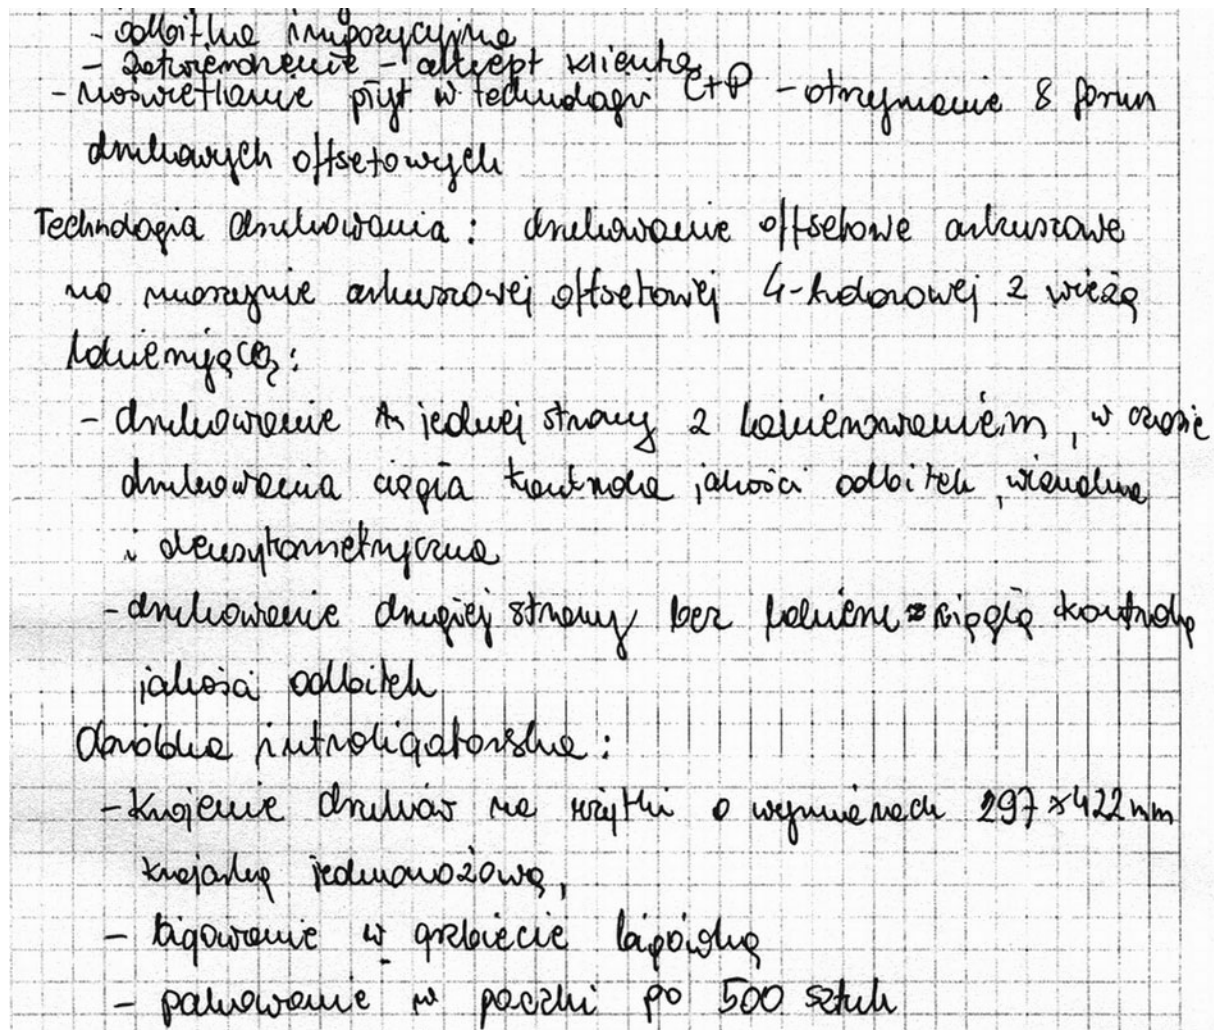 - odbitka impozycyjna
- zatwierdzenie - akcept klienta
- naświetlanie płyt w technologii CtP - otrzymanie 8 form
drukowych offsetowych
Technologia drukowania: drukowanie offsetowe arkuszowe
na maszynie arkuszowej offsetowej 4-kolorowej z wieżą
lakierującą:
- drukowanie jednej strony z lakierowaniem, w czasie
drukowania ciągła kontrola jakości odbitek, wizualna
i densytometryczna
- drukowanie drugiej strony bez lakieru z ciągłą kontrolą
jakości odbitek
Obróbka introligatorska:
- Krojenie druków na użytki o wymiarach 297 x 422 mm
krajarką jednonożową,
- bigowanie w grzbiecie bigówką
- pakowanie w paczki po 500 sztuk